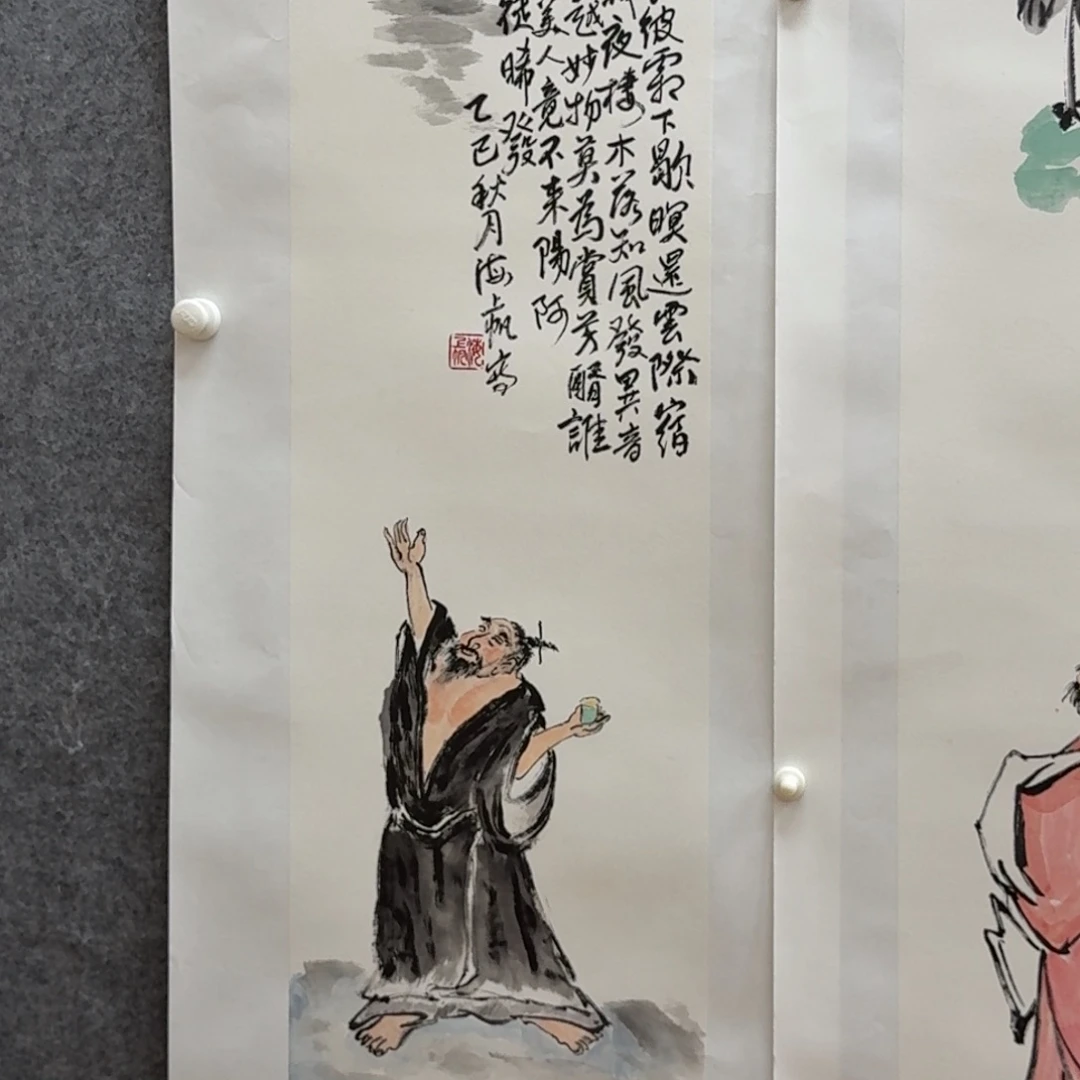 彼霜下歇暝還雲際宿
夜棲木落知風發異音
越妙物莫為賞芳醑誰
美人竟不来陽阿
徒晞發
乙巳秋月海上帆寫